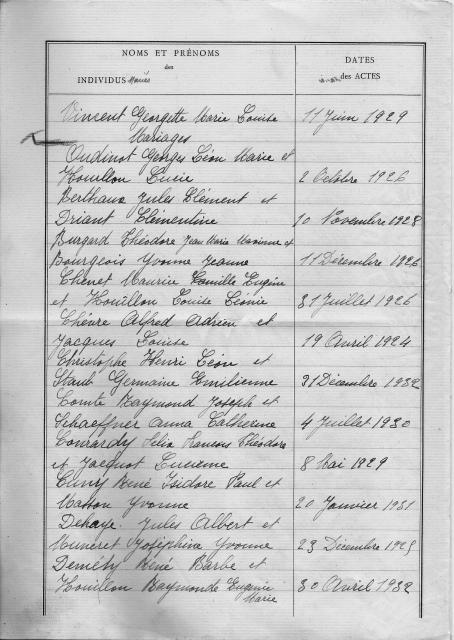 NOMS ET PRÉNOMS
des
INDIVIDUS Mariés
DATES
des ACTES
Vincent Georgette Marie Louise 11 Juin 1929
Mariages
Oudinot Georges Léon Marie et
Houillon Lucie 2 Octobre 1926
Berthaux Jules Clément et
Driant Clémentine 10 Novembre 1928
Burgard Théodore Jean Marie Maxime et
Bourgeois Yvonne Jeanne 11 Décembre 1926
Chenet Maurice Camille Eugène
et Houillon Louise Léonie 31 Juillet 1926
Chèvre Alfred Adrien et
Jacques Louise 19 Avril 1924
Christophe Henri Léon et
Staub Germaine Emilienne 31 Décembre 1932
Comte Raymond Joseph et
Schaeffner Anna Catherine 4 Juillet 1930
Conrardy Félix François Théodore
et Jacquot Lucienne 8 Mai 1929
Cuny René Isidore Paul et
Masson Yvonne 20 Janvier 1931
Dehaye Jules Albert et
Muneret Joséphine Yvonne 23 Décembre 1925
Deméty René Barbe et
Houillon Raymonde Eugénie 30 Avril 1932
Marie